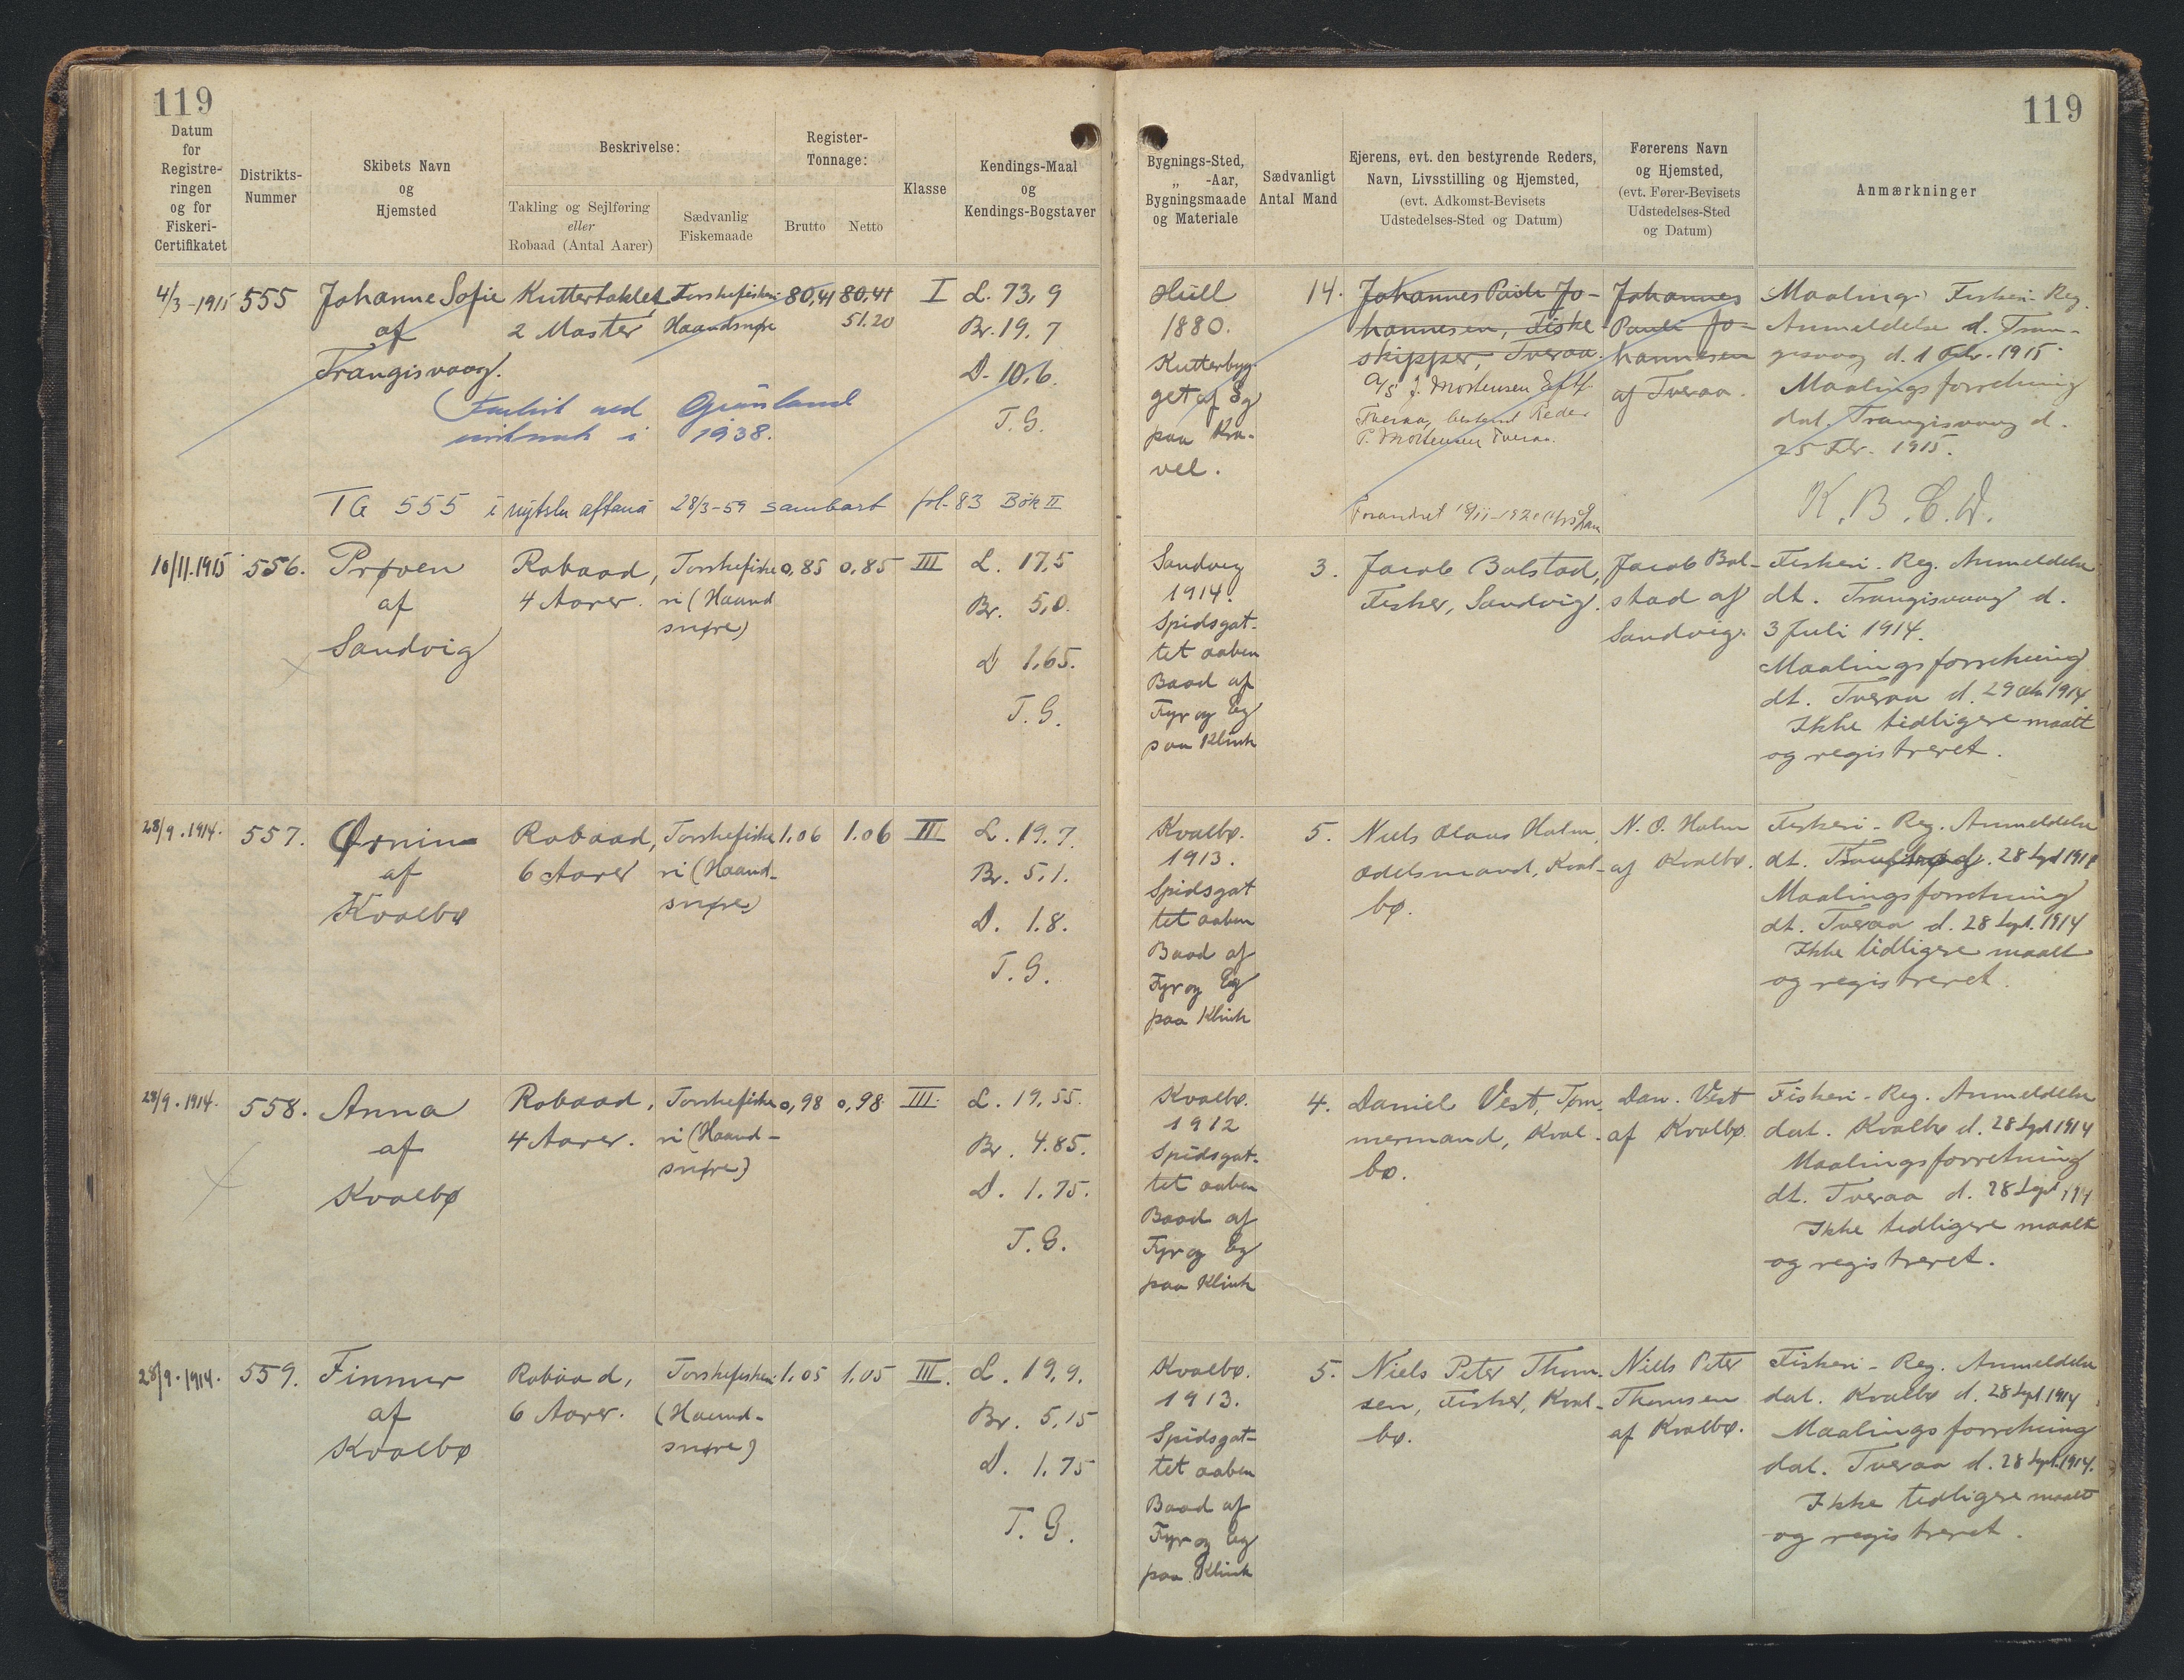 119
119
Datum
for
Registre-
ringen
og for
Fiskeri-
Certifikatet
Distrikts-
Nummer
Skibets Navn
og
Hjemsted
Beskrivelse:
Takling og Sejlføring
eller
Robaad (Antal Aarer)
Sædvanlig
Fiskemaade
Register-
Tonnage:
Brutto
Netto
Klasse
Kendings-Maal
og
Kendings-Bogstaver
Bygnings-Sted,
„ -Aar,
Bygningsmaade
og Materiale
Sædvanligt
Antal Mand
Ejerens, evt. den bestyrende Reders,
Navn, Livsstilling og Hjemsted,
(evt. Adkomst-Bevisets
Udstedelses-Sted og Datum)
Førerens Navn
og Hjemsted,
(evt. Fører-Bevisets
Udstedelses-Sted
og Datum)
Anmærkninger
4/3-1915
555
Johanne Sofie
af
Trangisvaag.
Kuttertaklet
2 Master
Torskefiskeri
Haandsnøre
80,41
80,41
51.20
I
L. 73,9
Br. 19.7
D. 10,6.
T.G.
ved Grønland
i 1938.
TG 555 i nýtslu aftaná 28/3-59 sambart fol. 83 Bók II
Hull
1880.
Kutterbyg-
get af Eg
paa Kra-
vel.
14.
Johannes Pauli Jo-
hannesen, Fiske-
skipper, Tveraa.
A/S J. Mortensen Eftf.
Tveraa, bestyrend Reder
P. Mortensen Tveraa.
Johannes
Pauli Jo-
hannesen
af Tveraa.
Maalings Fiskeri-Reg.
Anmeldelse d. Tran-
gisvaag d. 1 Febr. 1915.
Maalingsforretning
dat. Trangisvaag d.
25 Febr. 1915.
K.B.C.D.
10/11.1915
556.
Prøven
af
Sandvig
Robaad,
4 Aarer.
Torskefiske
ri (Haand
snøre)
0,85
0,85
III
L. 17,5
Br. 5,0.
D 1,65.
T.G.
Sandvig
1914.
Spidsgat-
tet aaben
Baad af
Fyr og Eg
paa Klink
3.
Jacob Bolstad,
Fisker, Sandvig.
Jacob Bol-
stad af
Sandvig.
Fiskeri-Reg. Anmeldelse
dt. Trangisvaag d.
3 Juli 1914.
Maalingsforretning
dt. Tveraa d. 29 Okt 1914.
Ikke tidligere maalt
og registreret.
28/9.1914.
557.
Ørnin
af
Kvalbø
Robaad,
6 Aarer
Torskefiske
ri (Haand-
snøre)
1.06
1.06
III
L. 19.7.
Br. 5,1.
D. 1.8.
T.G.
Kvalbø.
1913.
Spidsgat
tet aaben
Baad af
Fyr og Eg
paa Klink
5.
Niels Olaus Holm,
Odelsmand, Kval-
bø.
N. O. Holm
af Kvalbø.
Fiskeri-Reg. Anmeldelse
dt. d. 28 Sept 1914
Maalingsforretning
dt. Tveraa d. 28 Sept. 1914
Ikke tidligere maalt
og registreret.
28/9.1914.
558.
Anna
af
Kvalbø
Robaad,
4 Aarer.
Torskefiske
ri (Haand-
snøre)
0,98
0,98
III.
L. 19,55.
Br. 4.85.
D. 1.75.
T.G.
Kvalbø.
1912
Spidsgat-
tet aaben
Baad af
Fyr og Eg
paa Klink
4.
Daniel Vest, Tøm-
mermand, Kval-
bø.
Dan. Vest
af Kvalbø
Fiskeri-Reg. Anmeldelse
dat. Kvalbø d. 28 Sept 1914
Maalingsforretning
dt. Tveraa d. 28 Sept 1914
Ikke tidligere maalt
og registreret.
28/9.1914.
559.
Finnur
af
Kvalbø
Robaad,
6 Aarer.
Torskefiskeri
(Haand-
snøre)
1.05
1.05
III.
L. 19,9.
Br. 5,15
D. 1.75
T.G.
Kvalbø.
1913.
Spidsgat-
tet aaben
Baad af
Fyr og Eg
paa Klink
5.
Niels Peter Thom-
sen, Fisker, Kval-
bø.
Niels Peter
Thomsen
af Kvalbø.
Fiskeri-Reg. Anmeldelse
dat. Kvalbø d. 28 Sept 1914
Maalingsforretning
dat. Tveraa d. 28 Sept. 1914.
Ikke tidligere maalt
og registreret.